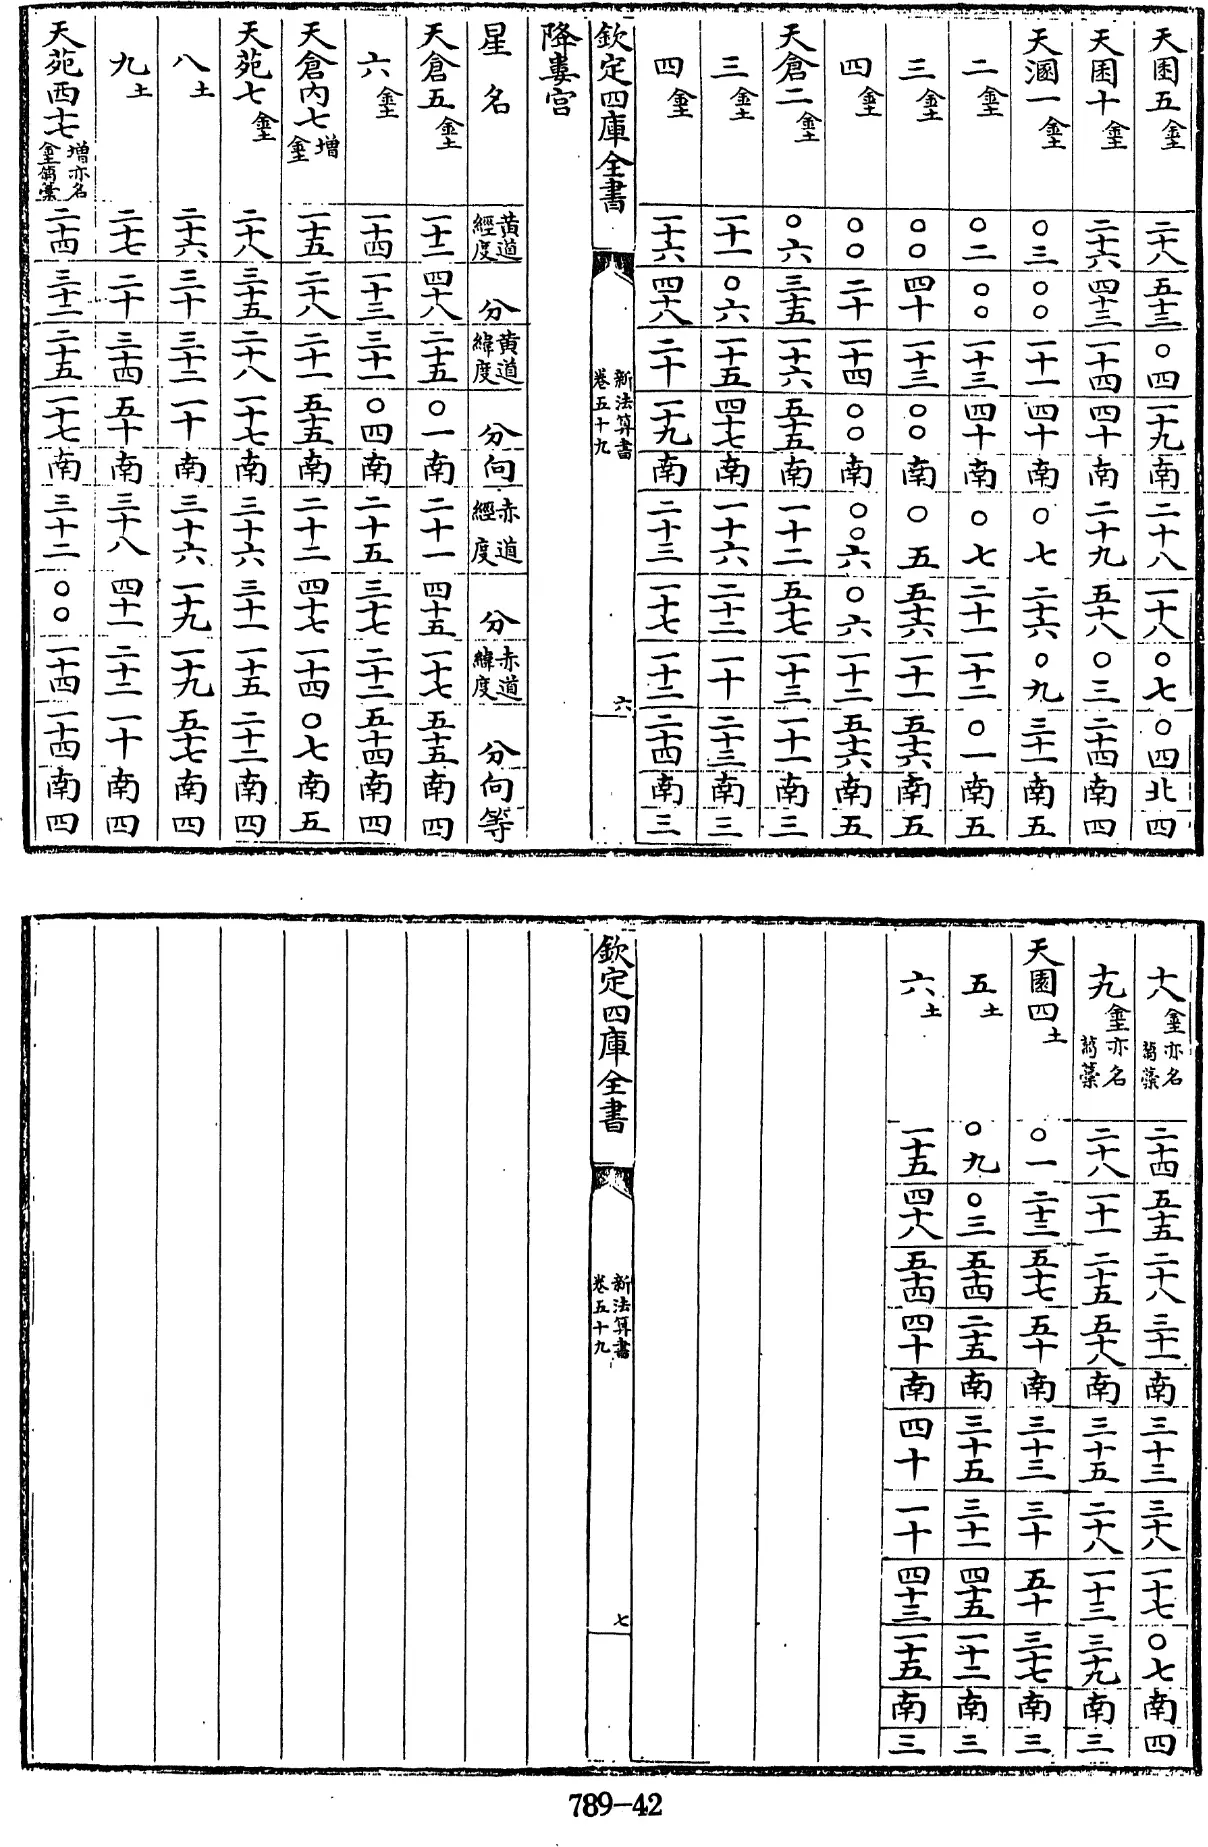 天囷五金土 二十八 五十三 〇四 一十九 南 二十八 一十八 〇七 〇四 北 四
天囷十金土 二十六 四十三 一十四 四十 南 二十九 五十八 〇三 二十四 南 四
天溷一金土 〇三 〇〇 一十一 四十 南 〇七 二十六 〇九 三十一 南 五
二金土 〇二 〇〇 一十三 四十 南 〇七 二十一 一十二 〇一 南 五
三金土 〇〇 四十 一十三 〇〇 南 〇五 五十六 一十一 五十六 南 五
四金土 〇〇 二十 一十四 〇〇 南 〇〇六 〇六 一十二 五十六 南 五
天倉二金土 〇六 三十五 一十六 五十五 南 一十二 五十七 一十三 一十一 南 三
三金土 一十一 〇六 一十五 四十七 南 一十六 二十二 一十 二十三 南 三
四金土 一十六 四十八 二十 一十九 南 二十三 一十七 一十二 二十四 南 三
欽定四庫全書 新法算書 卷五十九 六
降婁宮
星名 黃道經度 分 黃道緯度 分 向 赤道經度 分 赤道緯度 分 向 等
天倉五金土 一十二 四十八 二十五 〇一 南 二十一 四十五 一十七 五十五 南 四
六金土 一十四 一十三 三十一 〇四 南 二十五 三十七 二十二 五十四 南 四
天倉內七增金土 一十五 二十八 二十一 五十五 南 二十二 四十七 一十四 〇七 南 五
天苑七金土 二十八 三十五 二十八 一十七 南 三十六 三十一 一十五 二十二 南 四
八土 二十六 三十 三十二 一十 南 三十六 一十九 一十九 五十七 南 四
九土 二十七 二十 三十四 五十 南 三十八 四十一 二十二 一十 南 四
天苑西十七增亦名金土蒭藁 二十四 三十二 二十五 一十七 南 三十二 〇〇 一十四 一十四 南 四
十八金土亦名蒭藁 二十四 五十五 二十八 三十一 南 三十三 三十八 一十七 〇七 南 四
十九金土亦名蒭藁 二十八 一十一 二十五 五十八 南 三十五 二十八 一十三 三十九 南 三
天園四土 〇一 二十三 五十七 五十 南 三十三 三十 五十 三十七 南 三
五土 〇九 〇三 五十四 二十五 南 三十五 三十一 四十五 一十二 南 三
六土 一十五 四十八 五十四 四十 南 四十 一十 四十三 一十五 南 三
欽定四庫全書 新法算書 卷五十九 七
789-42